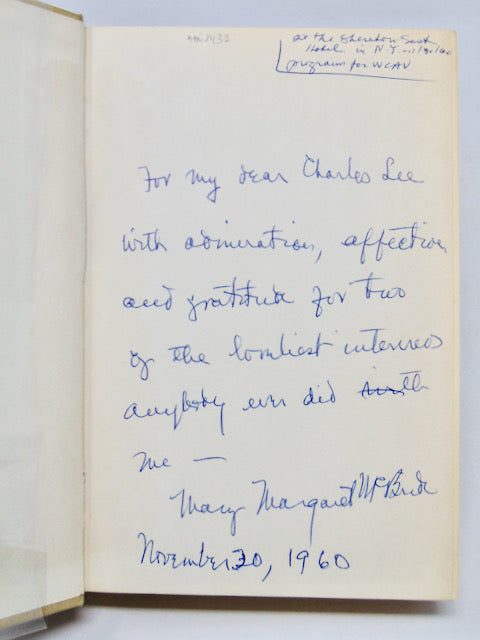 at the Sheraton-East
Hotel in N.Y.
programs for WCAU
For my dear Charles Lee
with admiration, affection
and gratitude for two
of the lovliest interviews
anybody ever did
me —
Mary Margaret McBride
November 30, 1960